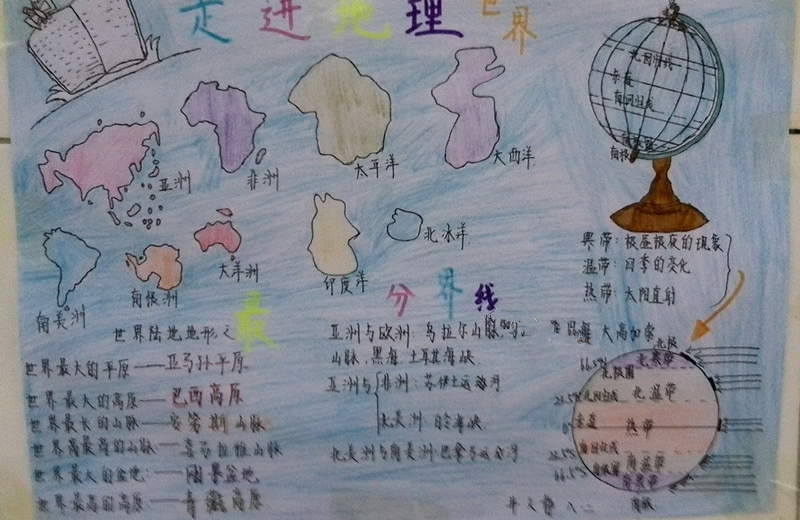 走进地理世界
北回归线
赤道
南回归线
南极
亚洲
非洲
太平洋
大西洋
南美洲
南极洲
大洋洲
印度洋
北冰洋
寒带：极昼极夜的现象
温带：四季的变化
热带：太阳直射
世界陆地地形之最
世界最大的平原——亚马孙平原
世界最大的高原——巴西高原
世界最长的山脉——安第斯山脉
世界最高的山脉——喜马拉雅山脉
世界最大的盆地：——刚果盆地
世界最高的高原——青藏高原
分界线
亚洲与欧洲：乌拉尔山脉
山脉、黑海、土耳其海峡
亚洲与
非洲：苏伊士运河
北美洲：白令海峡
北美洲与南美洲：巴拿马运河
大高加索
北极
66.5° 北寒带
北极圈
23.5° 北回归线 北温带
0° 赤道 热带
23.5° 南回归线
66.5° 南极圈 南温带
南寒带
南极
八二